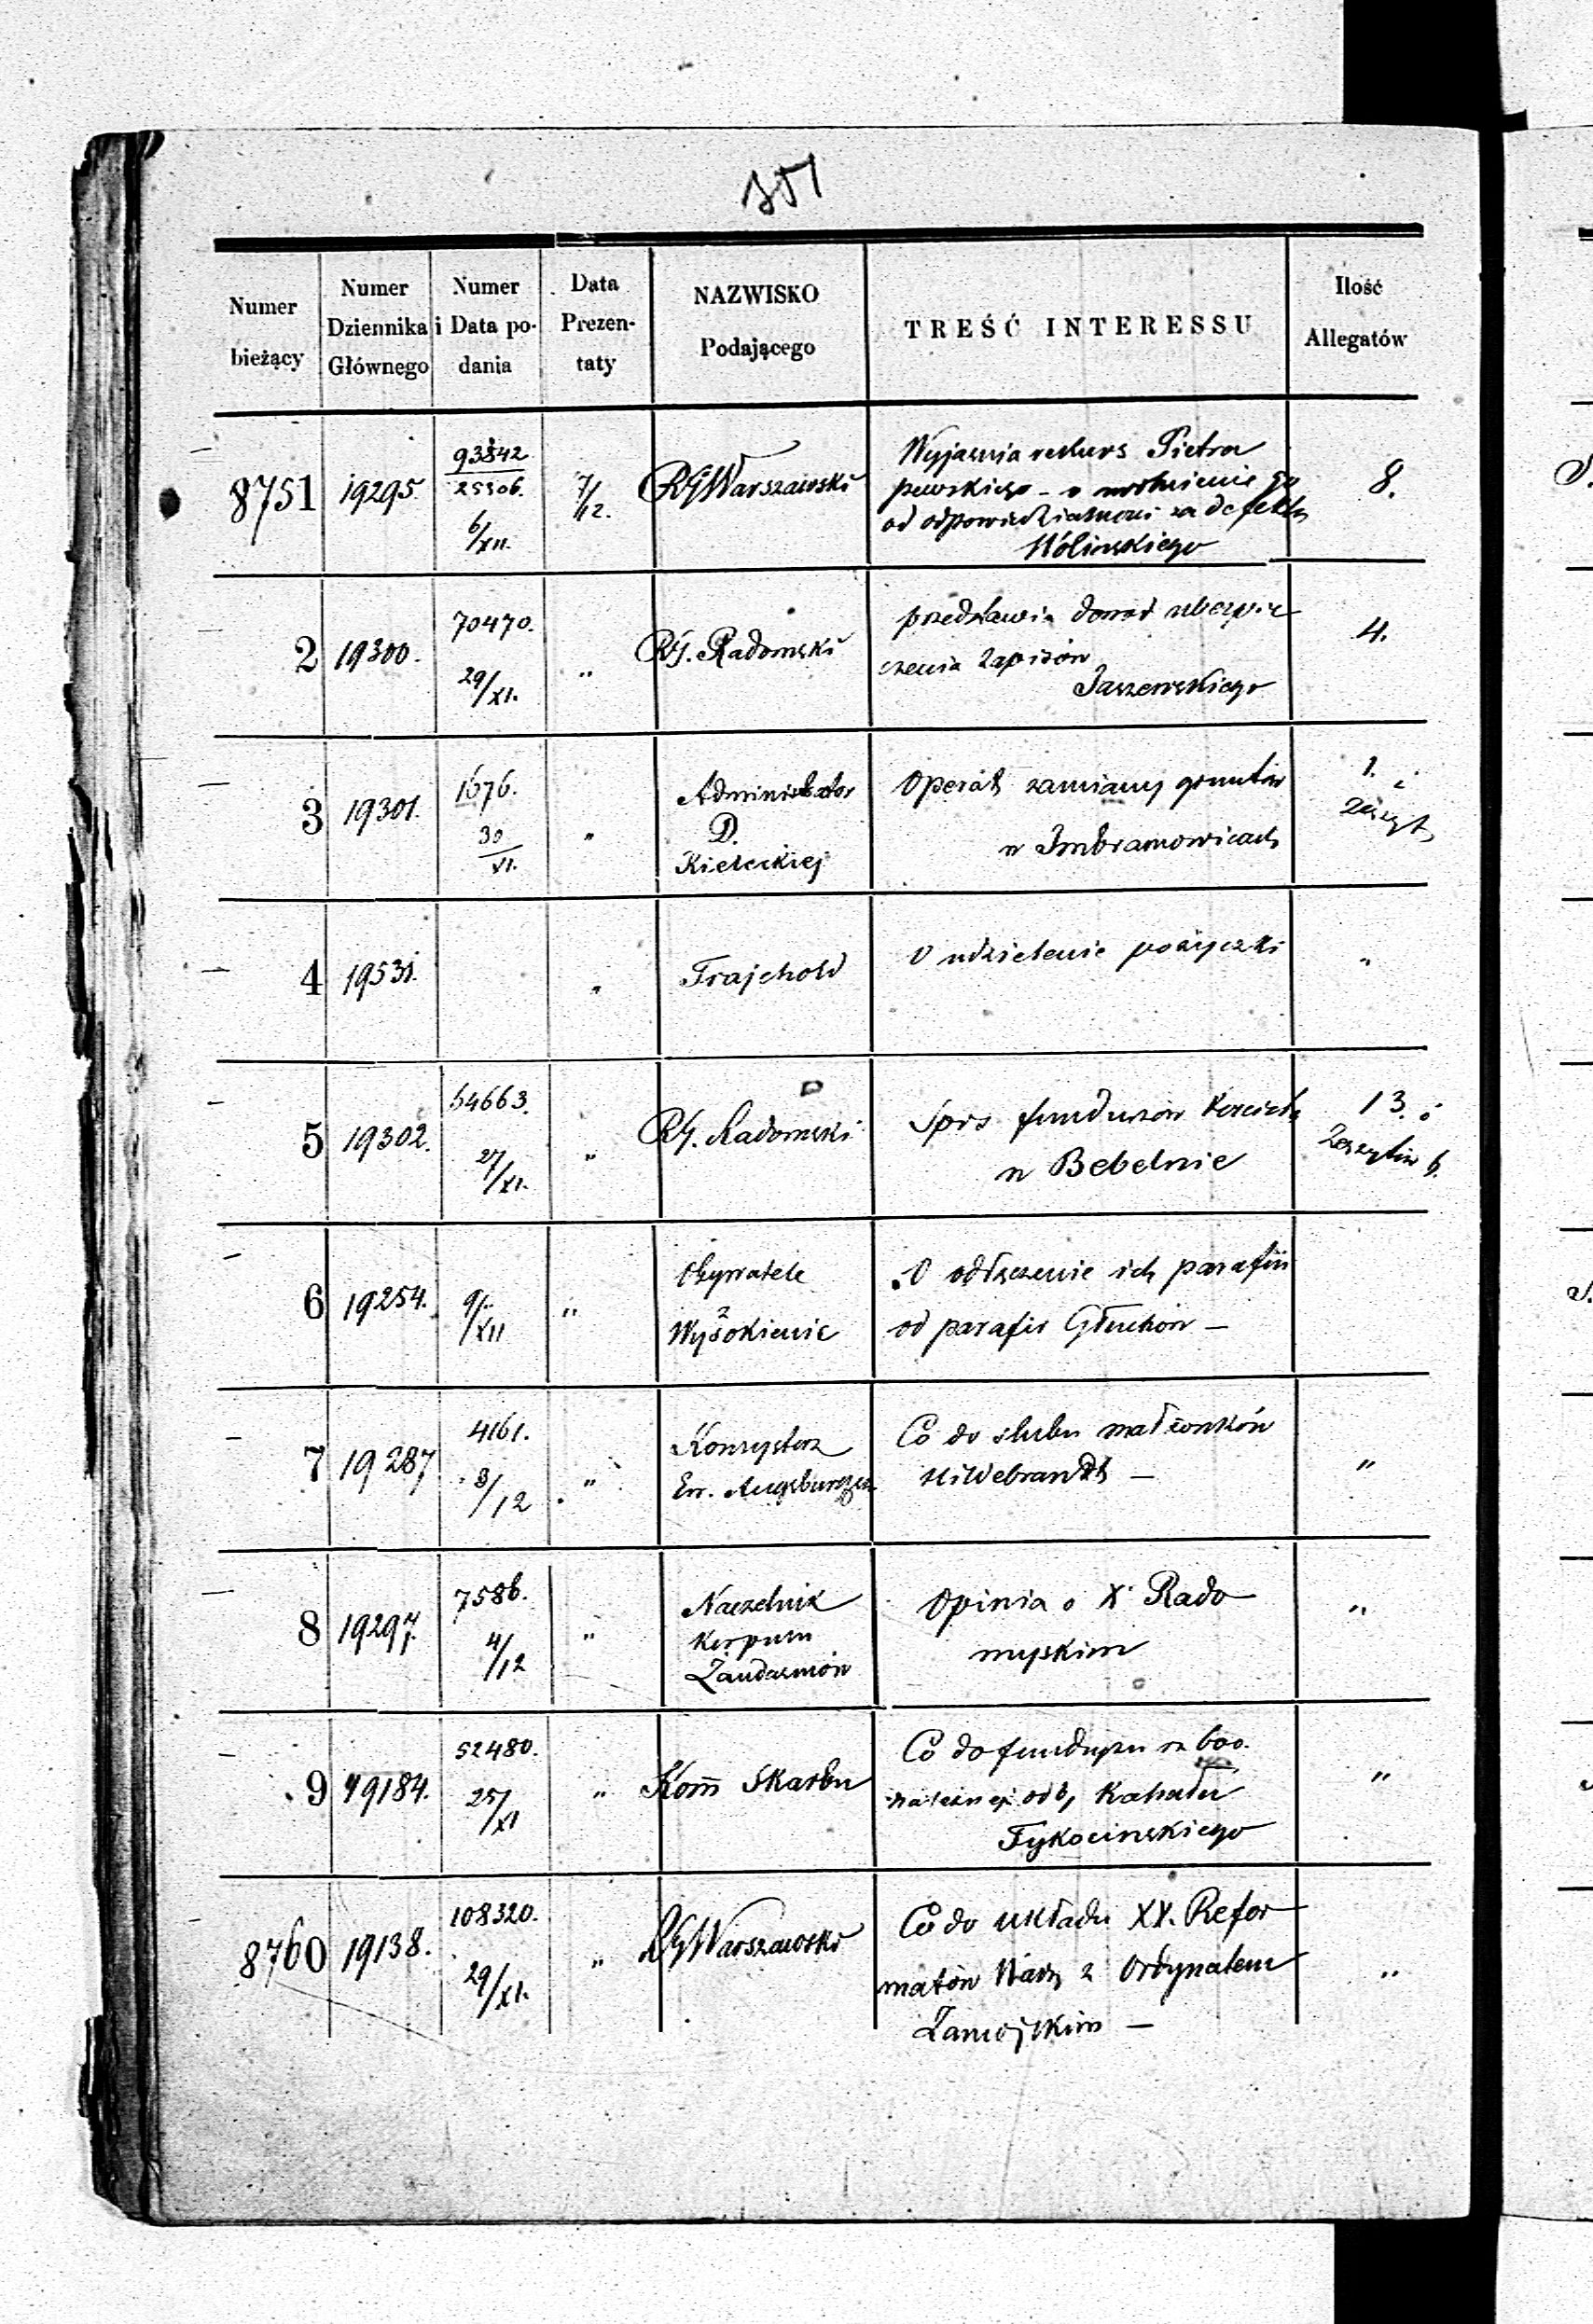 351
Numer bieżący
Numer Dziennika Głównego
Numer i Data podania
Data Prezentaty
NAZWISKO Podającego
TREŚĆ INTERESSU
Ilość Allegatów
8751 19295. 93842 25306. 6/XII. 7/12. RG Warszawski
Wyjaśnia rekurs Pietra
pewskiego - o uwolnienie go
od odpowiedzialności za defekta
Wolinskiego
8.
2 19300. 70470. 29/XI. " RG. Radomski
przedstawia dowod ubezpie
czenia zapisów
Jaszewskiego
4.
3 19301. 1676. 30/XI. "
Administrator
D.
Kieleckiej
Operat zamiany gruntów
w Imbramowicach
1. i
zeszyt
4 19531. " Trajchold
O udzielenie pożyczki
"
5 19302. 64663. 27/XI. " RG. Radomski
Spis funduszów Kościoła
w Bebelnie
13. i
Zeszytów 6.
6 19254. 9/XII "
Obywatele
z
Wysokienic
O odłączenie ich parafii
od parafii Głuchów —
7 19287 4161. 3/12 "
Konsystorz
Ew. Augsburgski
Co do ślubu małżonków
Hildebrandt —
"
8 19297. 7586. 4/12 "
Naczelnik
Korpusu
Żandarmów
Opinia o X Rado
myskim
"
9 19184. 52480. 25/XI " Kom Skarbu
Co do funduszu rs 600.
należnej od b. Kahału
Tykocinskiego
"
8760 19138. 108320. 29/XI. " RG Warszawski
Co do układu XX. Refor
matów Warsz z Ordynatem
Zamojskim —
"